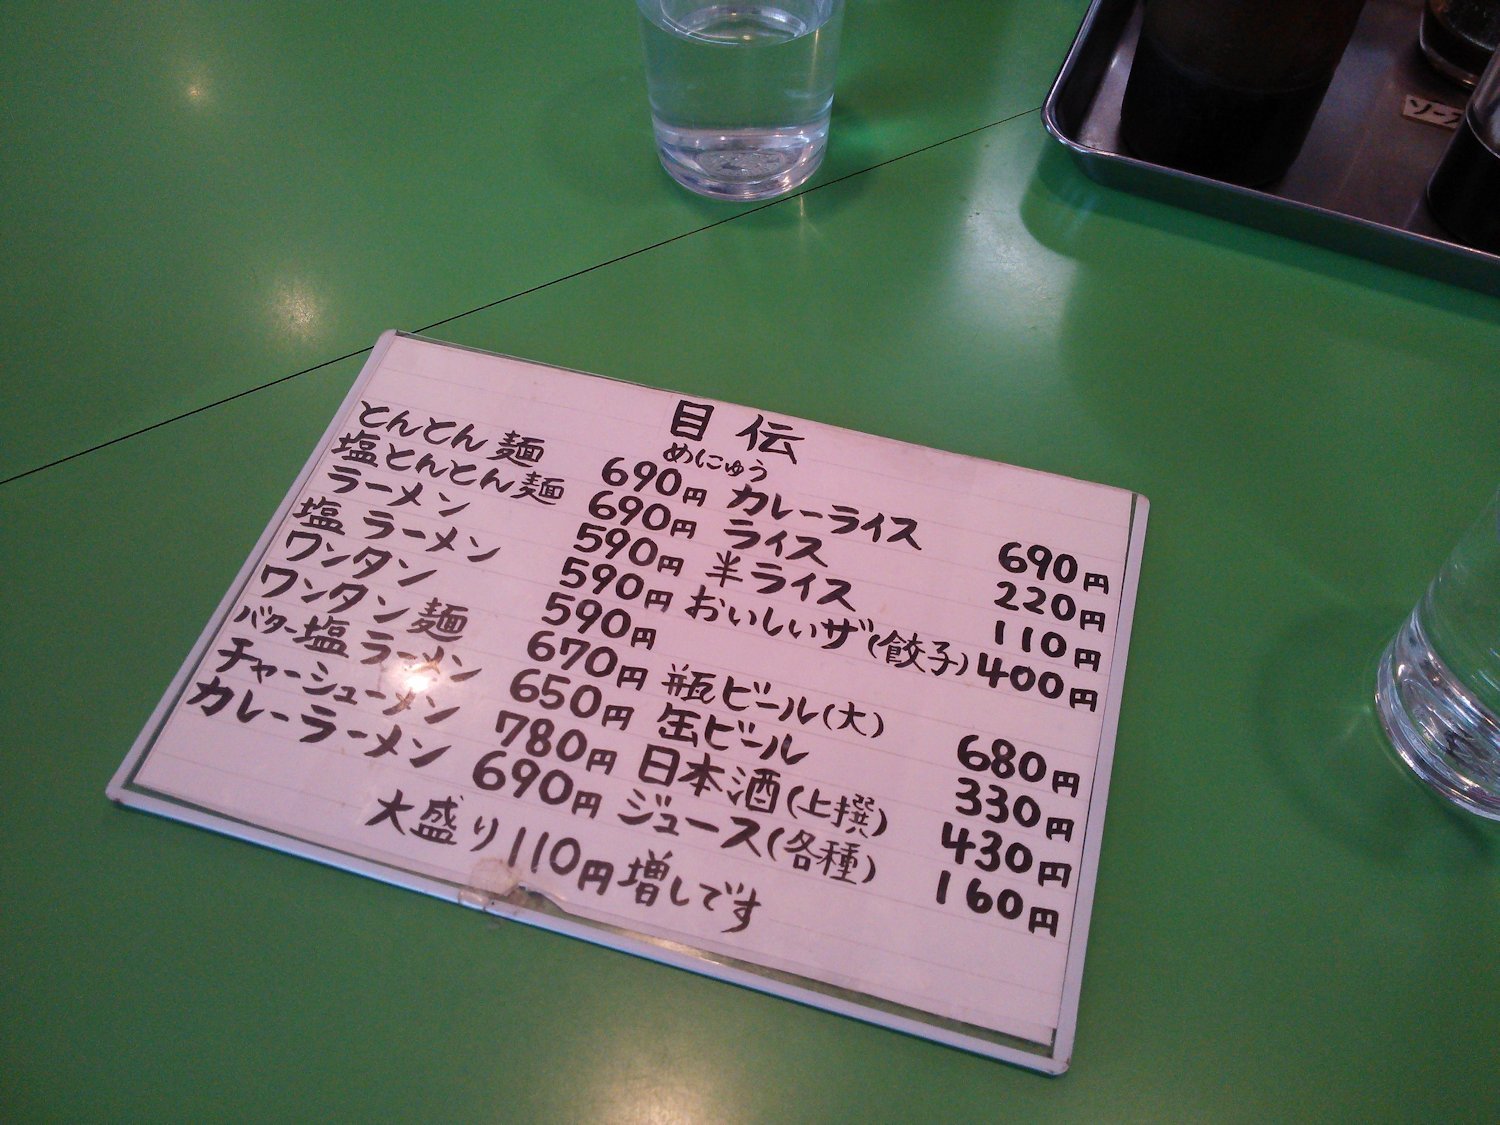 目伝
めにゅう
とんとん麺 690円
塩とんとん麺 690円
ラーメン 590円
塩ラーメン 590円
ワンタン 590円
ワンタン麺 670円
バター塩ラーメン 650円
チャーシューメン 780円
カレーラーメン 690円
カレーライス 690円
ライス 220円
半ライス 110円
おいしいザ(餃子) 400円
瓶ビール(大) 680円
缶ビール 330円
日本酒(上撰) 430円
ジュース(各種) 160円
大盛り110円増しです
ソース